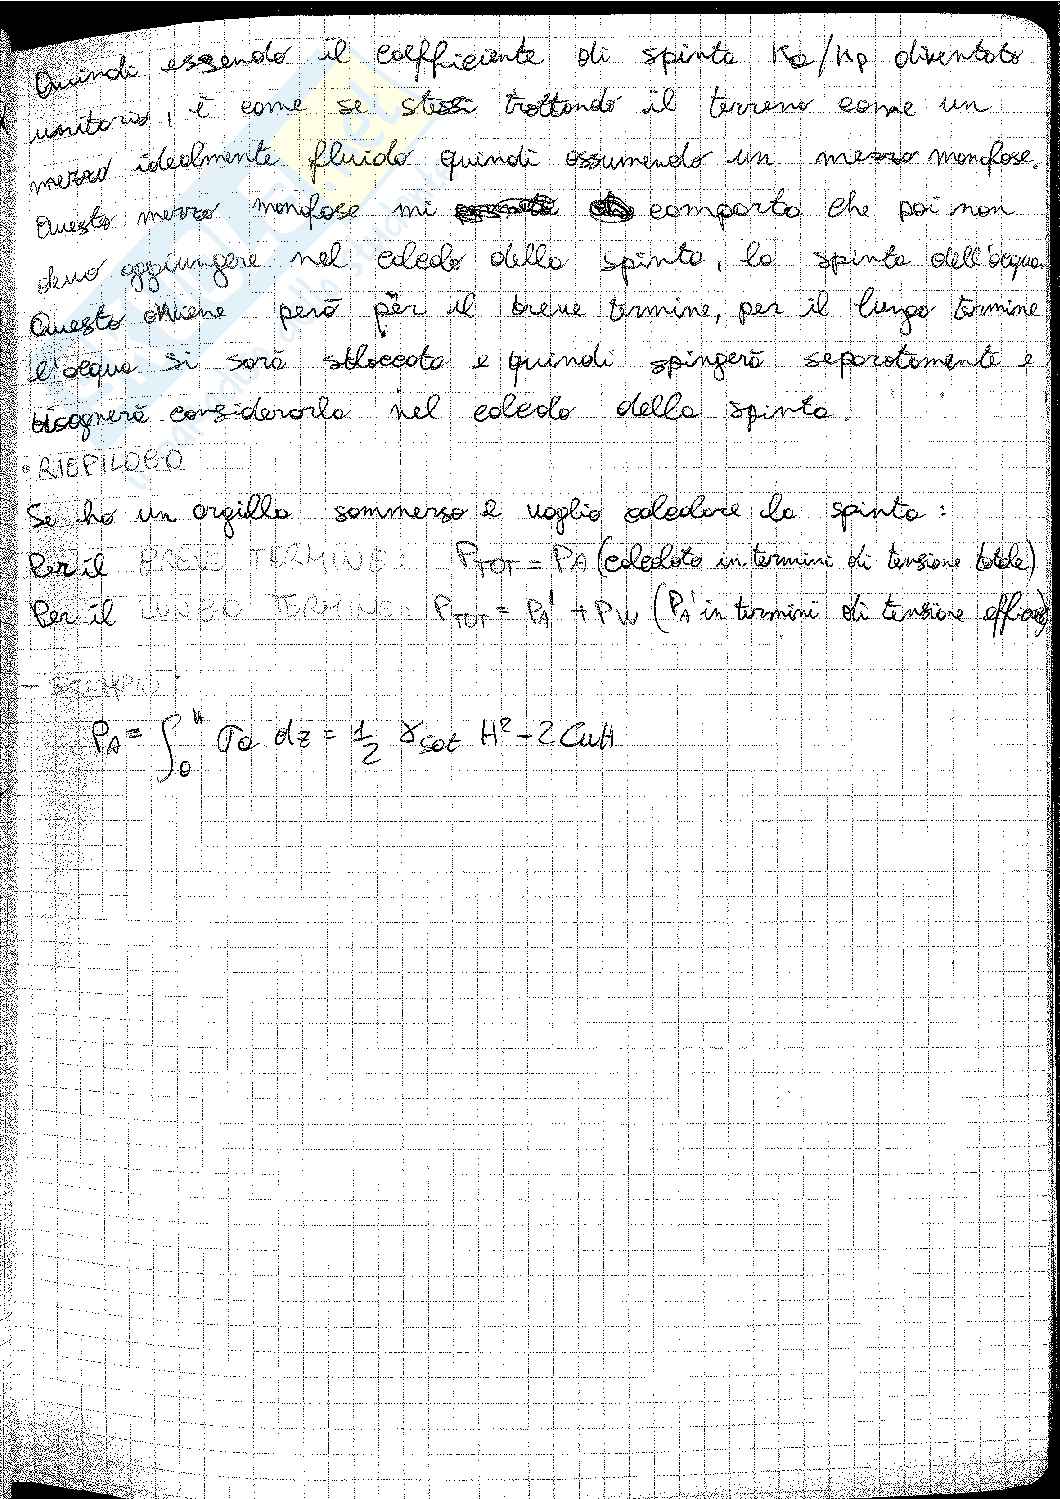 Quindi essendo il coefficiente di spinta Ka/Kp diventato
unitario, è come se stessi trattando il terreno come un
mezzo idealmente fluido quindi assumendo un mezzo monofase.
Questo mezzo monofase mi comporta che poi non
devo aggiungere nel calcolo della spinta, la spinta dell'acqua.
Questo avviene però per il breve termine, per il lungo termine
l'acqua si sarà sbloccata e quindi spingerà separatamente e
bisognerà considerarla nel calcolo della spinta.
• RIEPILOGO
Se ho un argilla sommersa e voglio calcolare la spinta:
Per il BREVE TERMINE: PTOT = PA (calcolata in termini di tensione totale)
Per il LUNGO TERMINE: PTOT = PA' + PW (PA' in termini di tensione efficace)
- ESEMPIO:
PA = ∫₀ᴴ σa dz = 1/2 γsat H² - 2 Cu H